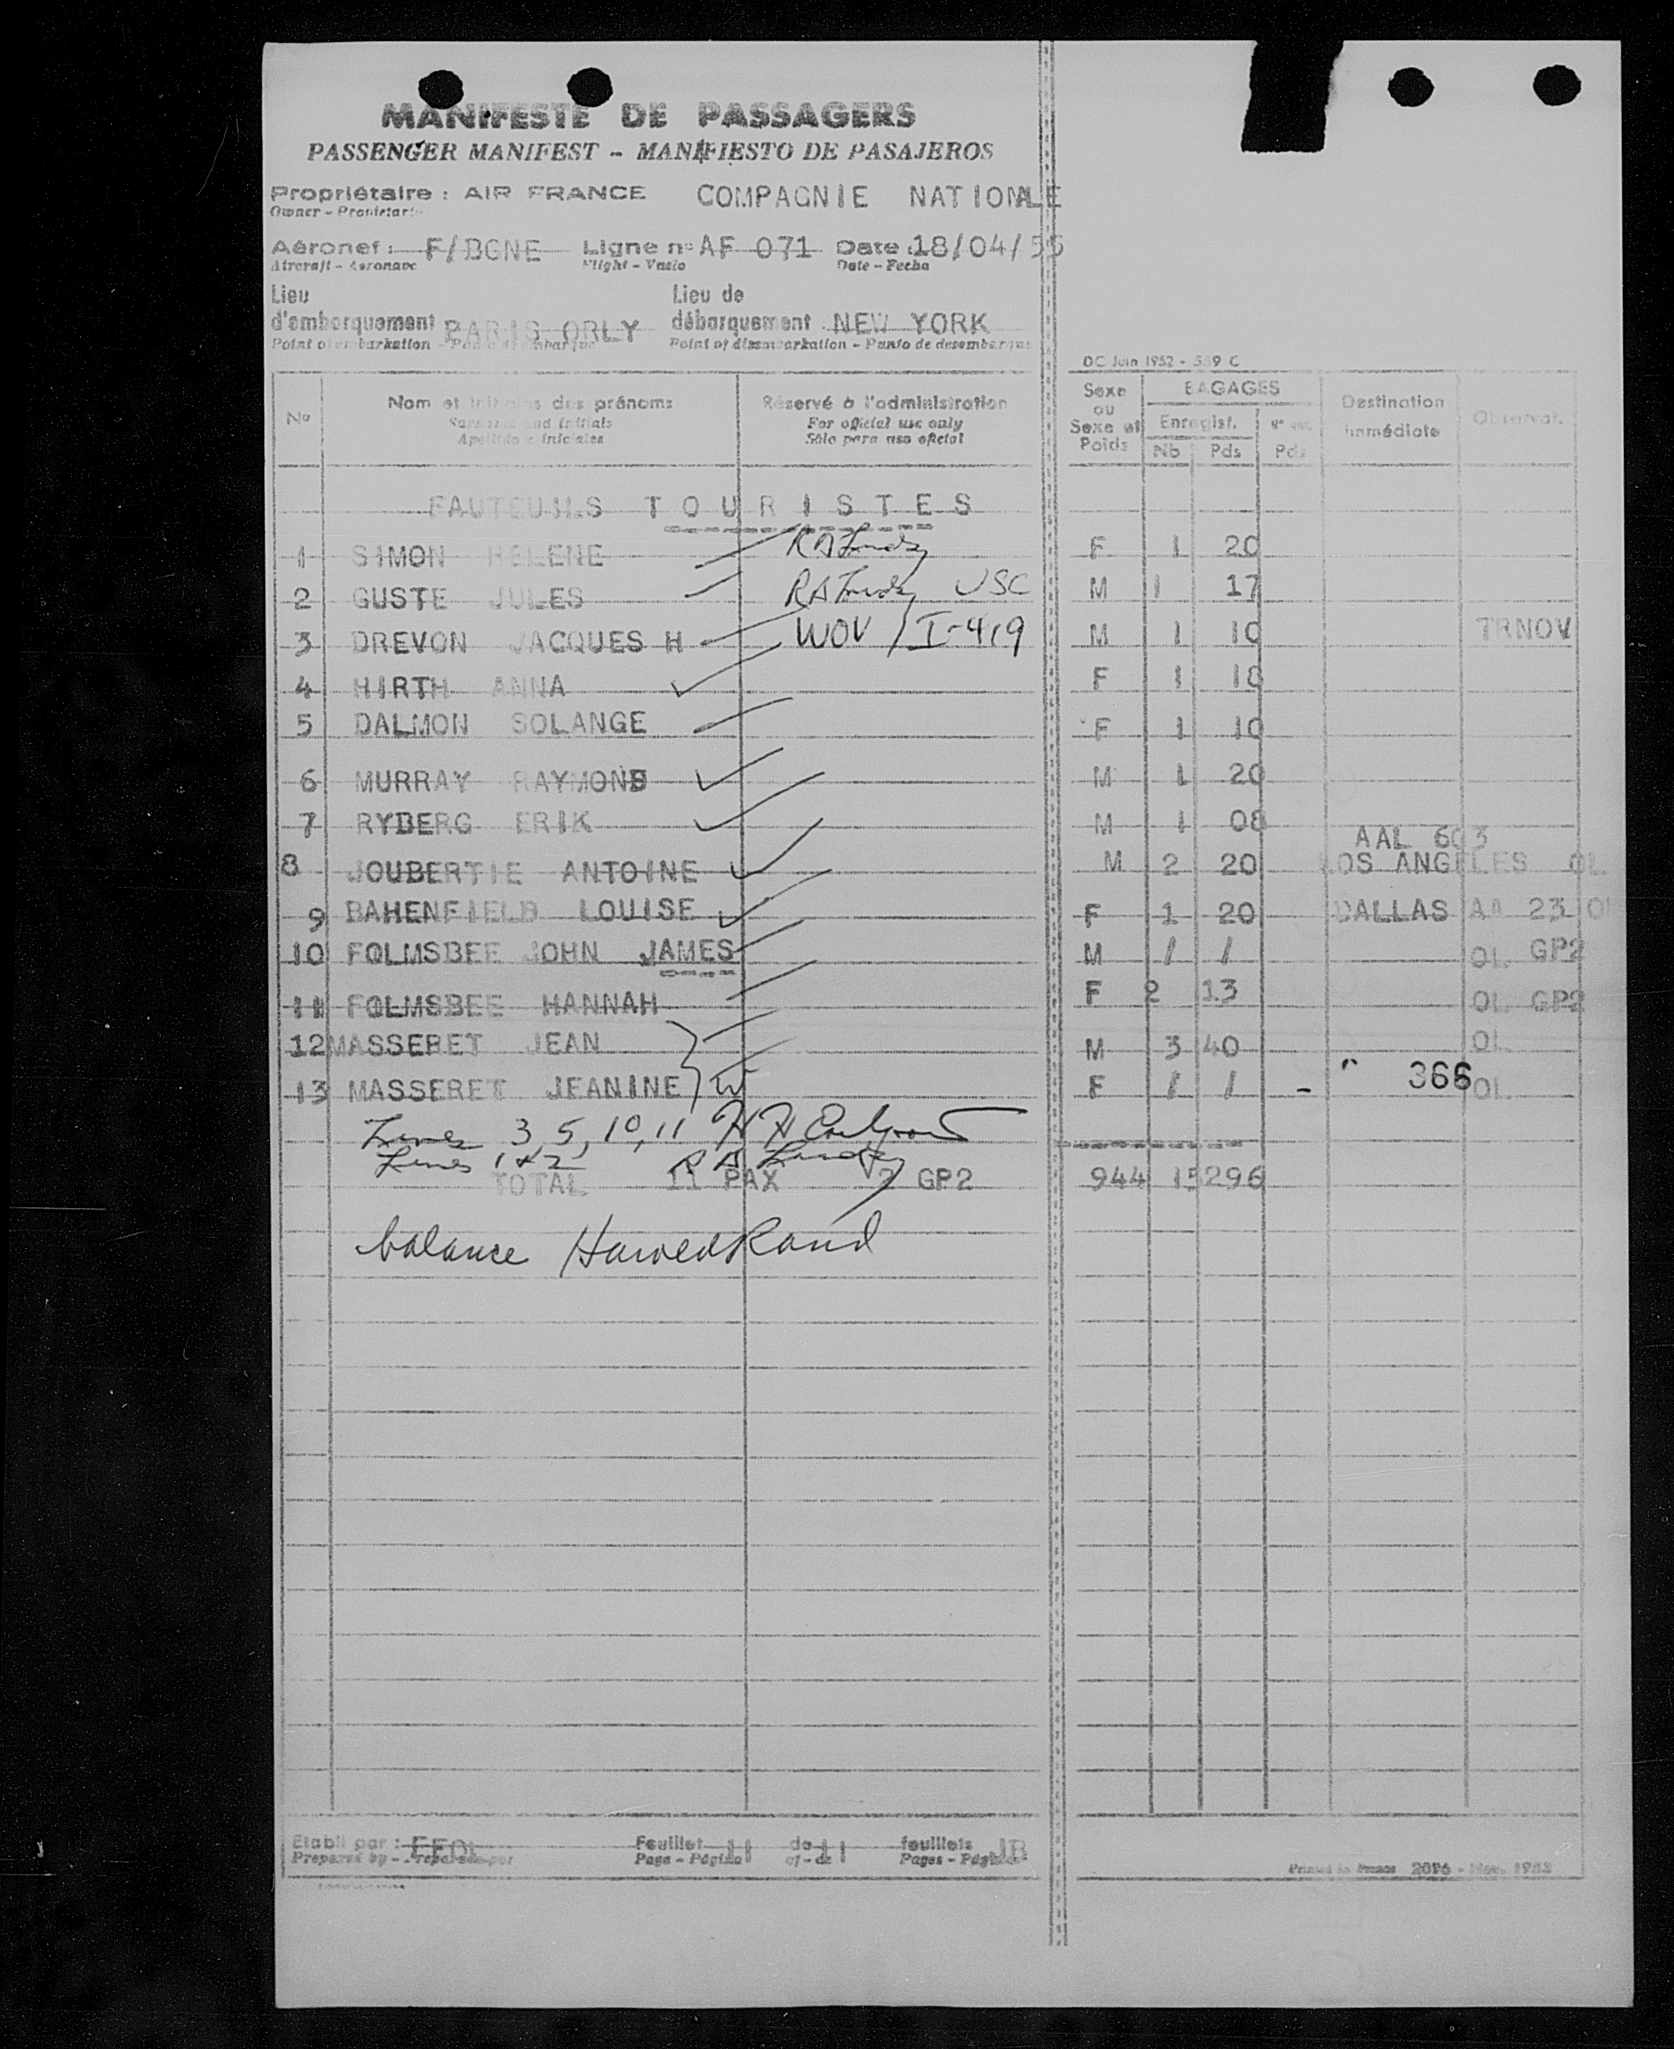 MANIFESTE DE PASSAGERS
PASSENGER MANIFEST - MANIFIESTO DE PASAJEROS
Propriétaire : AIR FRANCE COMPAGNIE NATIONALE
Owner - Propietario
Aéronef : F/BGNE Ligne n° AF 071 Date 18/04/55
Aircraft - Aeronave Flight - Vuelo Date - Fecha
Lieu d'embarquement PARIS ORLY Lieu de débarquement NEW YORK
Point of embarkation - Point of disembarkation - Punto de desembarque
DC Juin 1952 - 559 C
N° Nom et initiales des prénoms Réservé à l'administration Sexe ou Sexe et Poids BAGAGES Enregist. Nb Pds Pds Destination immédiate Observat.
Surname and initials For official use only
Apellido e iniciales Sólo para uso oficial
FAUTEUILS TOURISTES
1 SIMON HELENE F 1 20
2 GUSTE JULES USC M 1 17
3 DREVON JACQUES H WOV / I-419 M 1 10 TRNOV
4 HIRTH ANNA F 1 18
5 DALMON SOLANGE F 1 10
6 MURRAY RAYMOND M 1 20
7 RYBERG ERIK M 1 08
AAL 603
8 JOUBERTIE ANTOINE M 2 20 LOS ANGELES OL
9 BAHENFIELD LOUISE F 1 20 DALLAS AA 23
10 FOLMSBEE JOHN JAMES M / / OL GP2
11 FOLMSBEE HANNAH F 2 13 OL GP2
12 MASSERET JEAN M 3 40 OL
13 MASSERET JEANINE F / / - 366 OL
Lines 3, 5, 10, 11
Lines 1 & 2
TOTAL 11 PAX 2 GP2 944 15 296
balance Harold Rand
Etabli par : Feuillet 11 de 11 feuillets JB
Prepared by - Preparado por Page - Página of - de Pages - Páginas
Printed in France 2096 - Nov. 1953